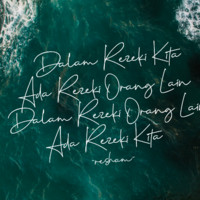 Dalam Rezeki Kita
Ada Rezeki Orang Lain
Dalam Rezeki Orang Lain
Ada Rezeki Kita
-resham-